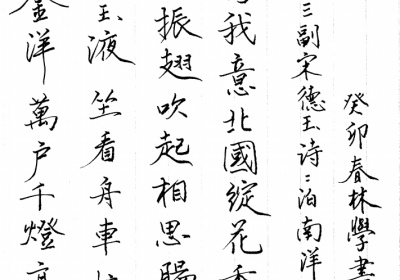 癸卯春林學書
三副宋德玉诗:泊南洋
我意北國綻花香
振翅吹起相思腸
玉液坐看舟車
金洋萬户千燈